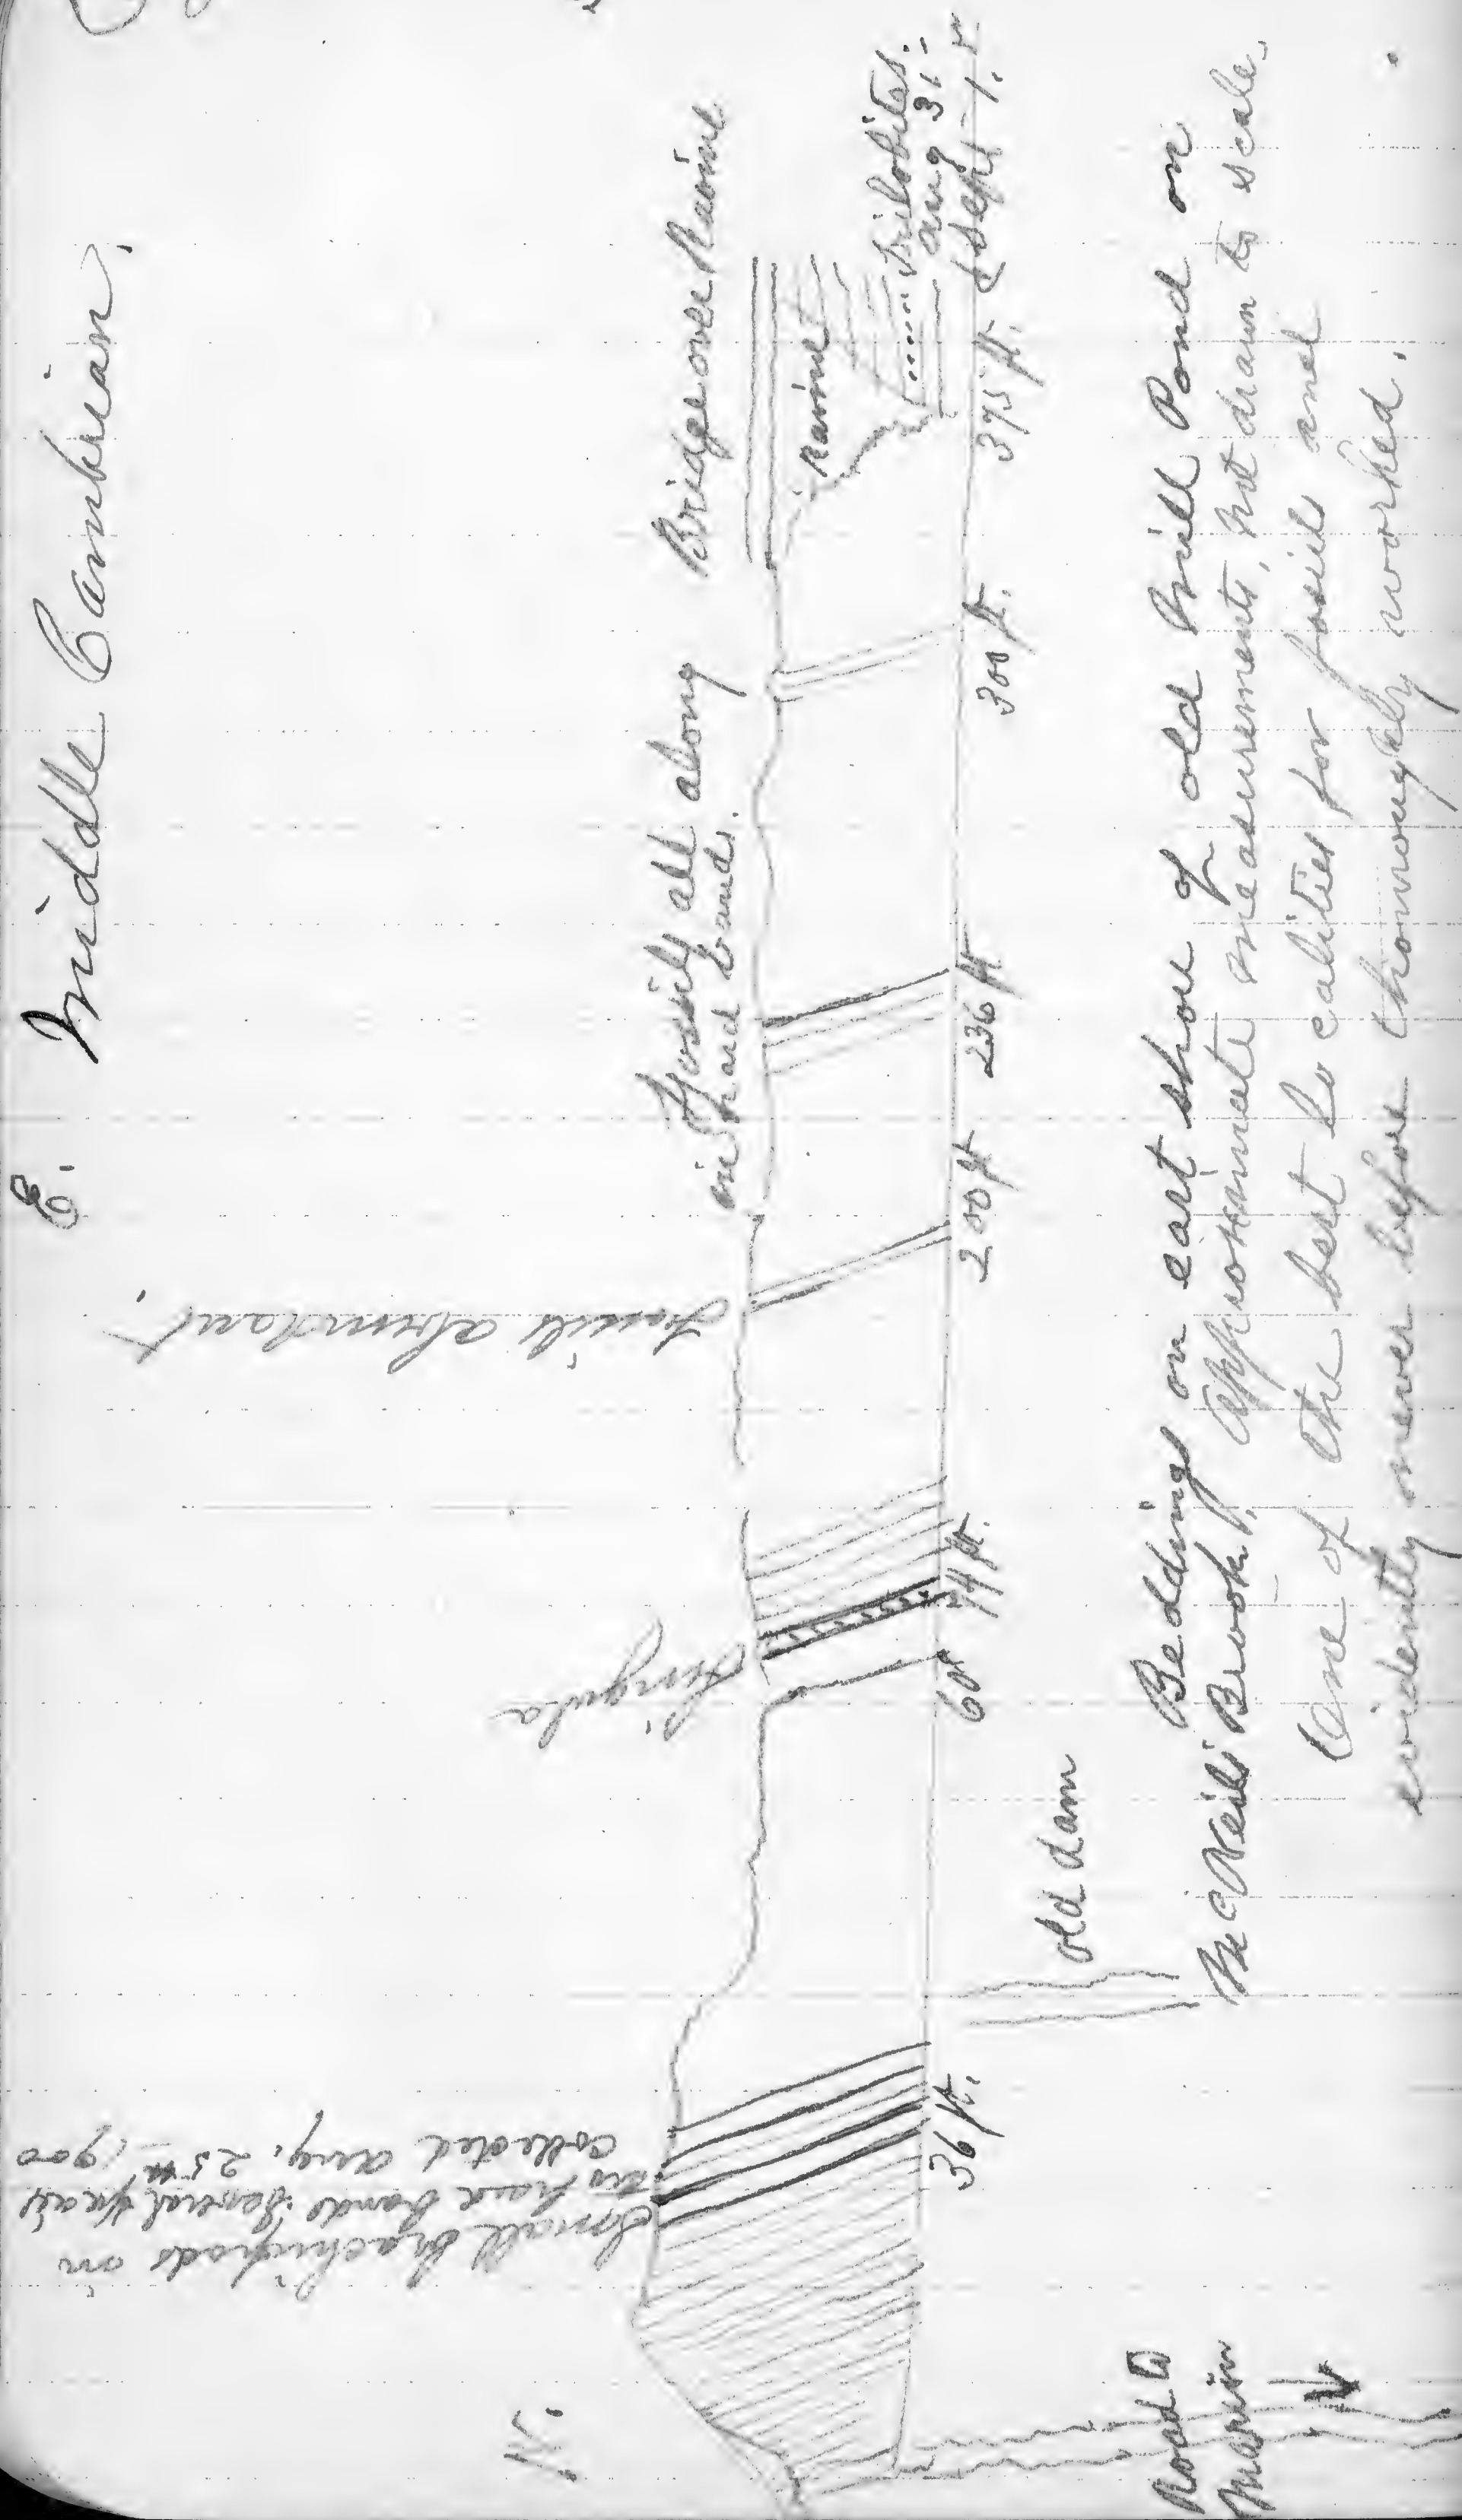 E.
Middle Cambrian.
N.
Small brachiopods on
two hard bands. Several
collected Aug. 25th 1900
Lingula
Fossils abundant.
Fossils all along
in hard bands.
Bridge over Ravine
Ravine
Trilobites.
Aug 31 -
& Sept 1.
36 ft.
60
74 ft.
200 ft
236 ft
300 ft.
375 ft.
old dam
Road to
Marion
Beddings on east shore of old Mill Pond on
McNeils Brook, Approximate measurements, not drawn to scale.
One of the best localities for fossils and
evidently never before thoroughly worked.